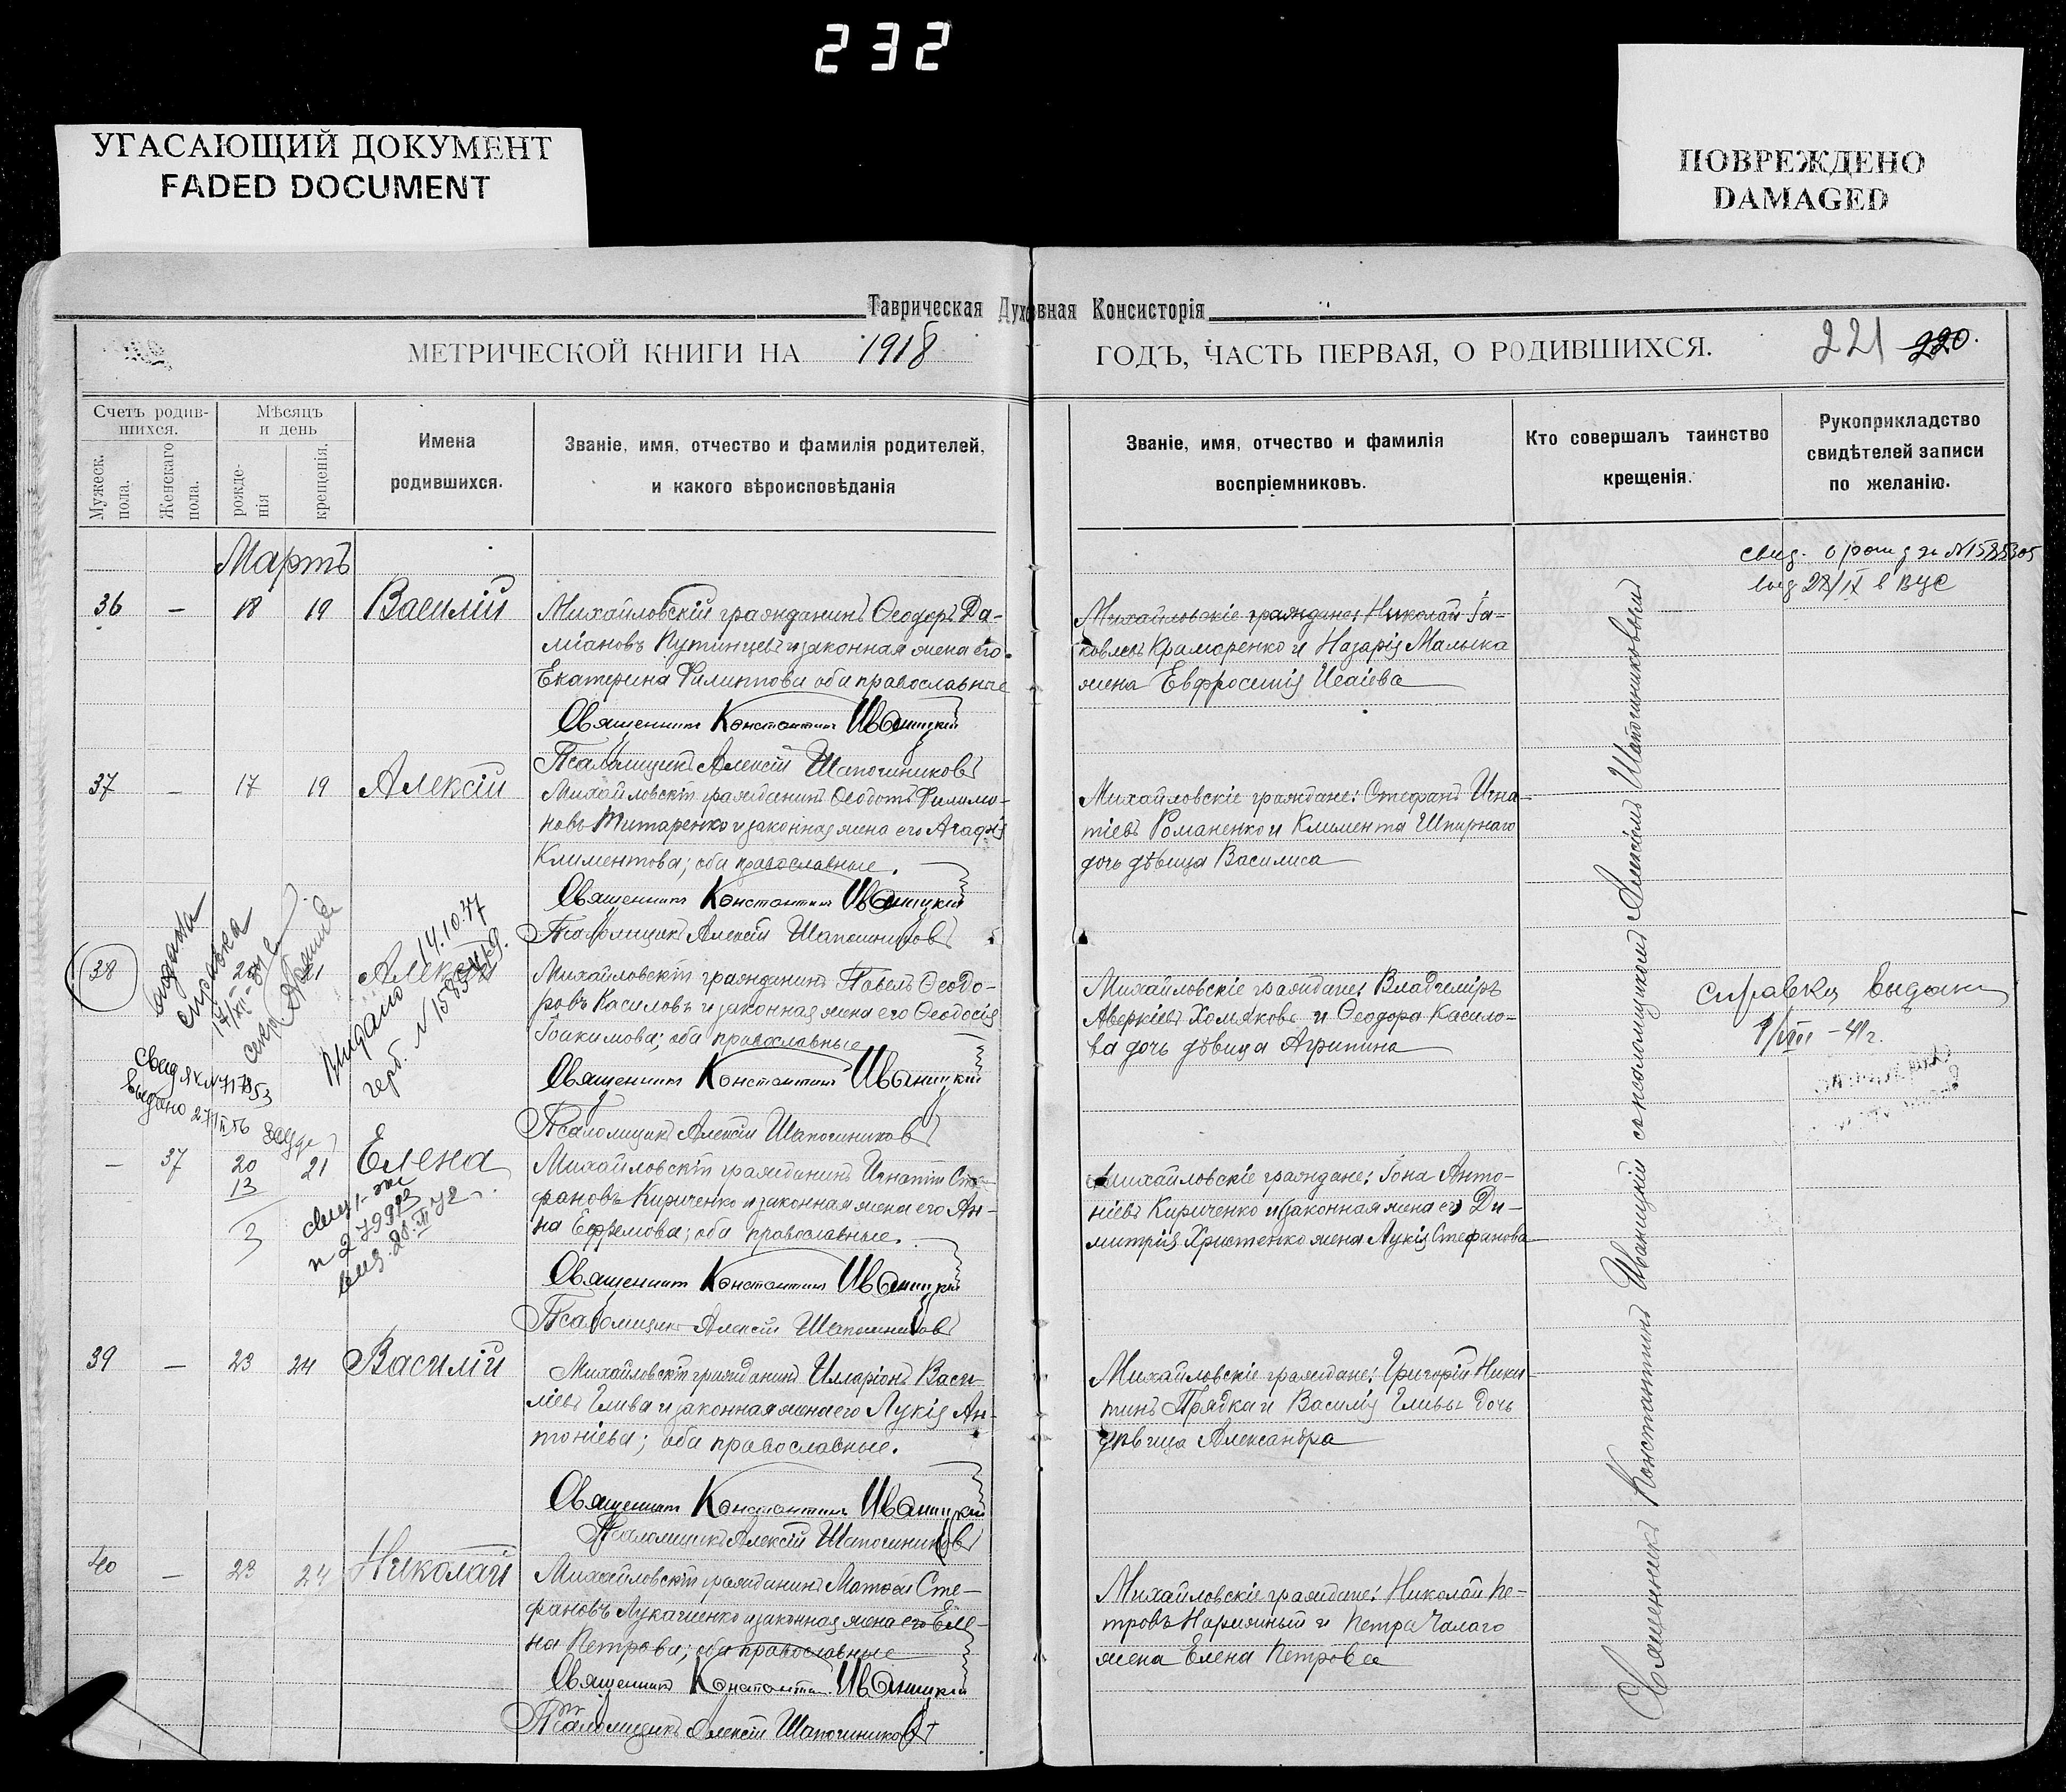 232
УГАСАЮЩИЙ ДОКУМЕНТ
FADED DOCUMENT
ПОВРЕЖДЕНО
DAMAGED
Таврическая Духовная Консисторія
МЕТРИЧЕСКОЙ КНИГИ НА 1918 ГОДЪ, ЧАСТЬ ПЕРВАЯ, О РОДИВШИХСЯ.
221 220.
Счетъ родив-
шихся.
Мужеск. пола.
Женскаго пола.
Мѣсяцъ
и день
рожде-
нія
крещенія.
Имена
родившихся.
Званіе, имя, отчество и фамилія родителей,
и какого вѣроисповѣданія
Званіе, имя, отчество и фамилія
воспріемниковъ.
Кто совершалъ таинство
крещенія.
Рукоприкладство
свидѣтелей записи
по желанію.
Мартъ
36 — 18 19 Василій
Михайловскій гражданинъ Ѳеодоръ Да-
міановъ Путинцевъ и законная жена его
Екатерина Филиппова оба православные
Священникъ Константинъ Иваницкій
Псаломщикъ Алексій Шапошниковъ
Михайловскіе граждане: Николай Іа-
ковлевъ Крамаренко и Назарія Малыка
жена Евфросинія Исаіева
37 — 17 19 Алексій
Михайловскій гражданинъ Ѳеодотъ Филимо-
новъ Титаренко и законная жена его Агафія
Климентова; оба православные.
Священникъ Константинъ Иваницкій
Псаломщикъ Алексій Шапошниковъ
Михайловскіе граждане: Стефанъ Игна-
тіевъ Романенко и Климента Шпирнаго
дочь дѣвица Василиса
38 21 Алексій
выдана
справка
Видано 14.10.47
Михайловскій гражданинъ Павелъ Ѳеодо-
ровъ Касиловъ и законная жена его Ѳеодосія
Іоакимова; оба православные
Священникъ Константинъ Иваницкій
Псаломщикъ Алексій Шапошниковъ
Михайловскіе граждане: Владиміръ
Аверкіевъ Хомяковъ и Ѳеодора Касило-
ва дочь дѣвица Агрипина
справка выдана
— 37 20 21 Елена
13
3
Михайловскій гражданинъ Игнатій Сте-
фановъ Кириченко и законная жена его Ан-
на Ефремова; оба православные.
Священникъ Константинъ Иваницкій
Псаломщикъ Алексій Шапошниковъ
Михайловскіе граждане: Іона Анто-
ніевъ Кириченко и законная жена его Ди-
митрія Христенко жена Лукія Стефанова
39 — 23 24 Василій
Михайловскій гражданинъ Илларіонъ Васи-
ліевъ Глива и законная жена его Лукія Ан-
тоніева; оба православные.
Священникъ Константинъ Иваницкій
Псаломщикъ Алексій Шапошниковъ
Михайловскіе граждане: Григорій Ники-
тинъ Прядка и Василія Гливы дочь
дѣвица Александра
40 — 23 24 Николай
Михайловскій гражданинъ Матѳій Сте-
фановъ Лукашенко и законная жена его Еле-
на Петрова; оба православные
Священникъ Константинъ Иваницкій
Псаломщикъ Алексій Шапошниковъ
Михайловскіе граждане: Николай Пе-
тровъ Нарижный и Петра Чалаго
жена Елена Петрова
Священникъ Константинъ Иваницкій съ псаломщикомъ Алексіемъ Шапошниковымъ